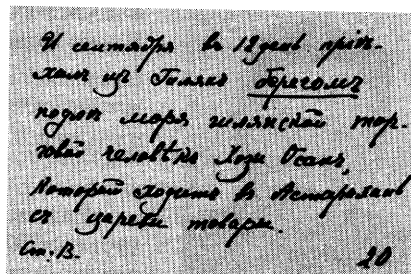 И сентября въ 12 день пріѣ-
халъ изъ Гиляни берегомъ
подлѣ моря гилянской тор-
говой человѣкъ Хози Осанъ,
который ходитъ въ Астарханъ
съ царевы товары.
Ст. В.
20